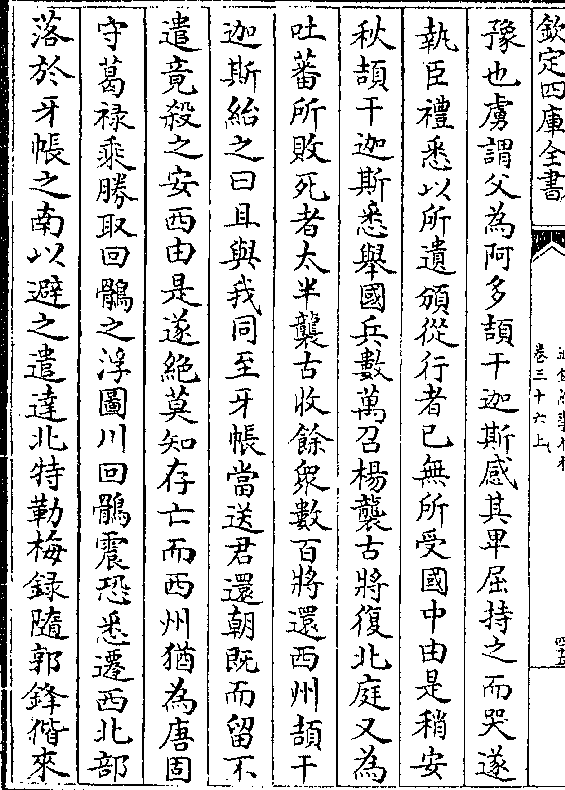 欽定四庫全書
卷三十六上
豫也虜謂父為阿多頡干迦斯感其卑屈持之而哭遂
執臣禮悉以所遺頒從行者已無所受國中由是稍安
秋頡干迦斯悉舉國兵數萬召楊襲古將復北庭又為
吐蕃所敗死者太半襲古收餘衆數百將還西州頡干
迦斯紿之曰且與我同至牙帳當送君還朝旣而留不
遣竟殺之安西由是遂絶莫知存亡而西州猶為唐固
守葛祿乘勝取回鶻之浮圖川回鶻震恐悉遷西北部
落於牙帳之南以避之遣達北特勒梅録隨郭鋒偕來